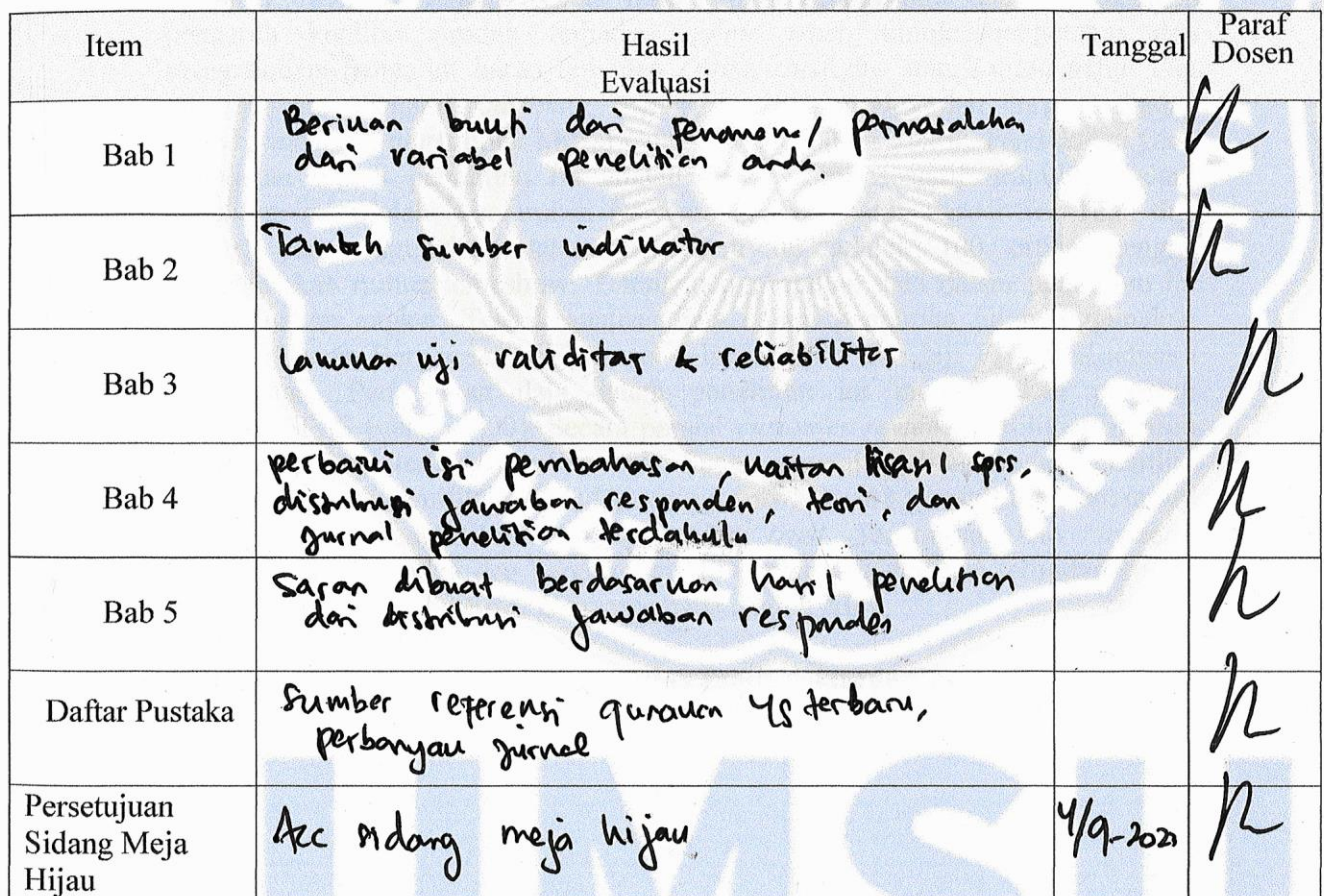 Item Hasil Evaluasi Tanggal Paraf Dosen
Bab 1 Berikan bukti dari fenomena/ permasalahan
dari variabel penelitian anda.
Bab 2 Tambah sumber indikator
Bab 3 Lakukan uji validitas & reliabilitas
Bab 4 perbaiki isi pembahasan, kaitan hasil spss,
distribusi jawaban responden, teori, dan
jurnal penelitian terdahulu
Bab 5 Saran dibuat berdasarkan hasil penelitian
dari distribusi jawaban responden
Daftar Pustaka Sumber referensi gunakan yg terbaru,
perbanyak jurnal
Persetujuan
Sidang Meja Acc sidang meja hijau
Hijau
SUMATERA UTARA
UMSU